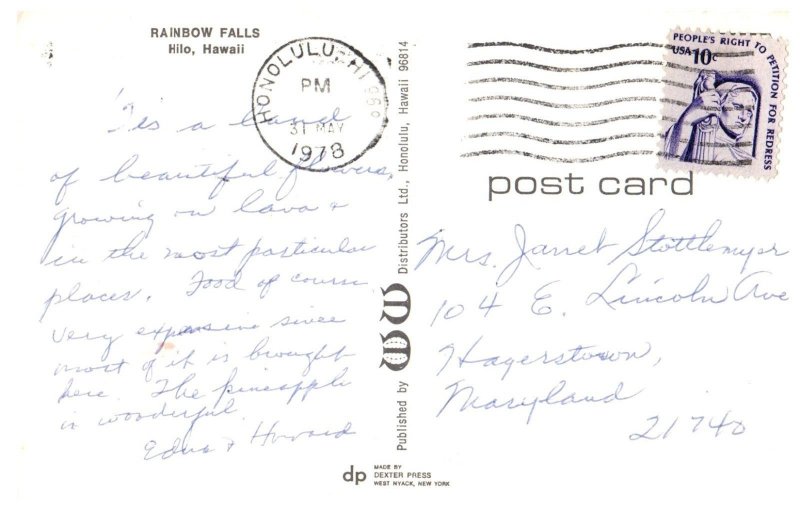 RAINBOW FALLS
Hilo, Hawaii
'Tis a land
of beautiful flowers,
growing in lava &
in the most particular
places. Food of course
very expensive since
most of it is brought
here. The pineapple
is wonderful
Edna & Howard
HONOLULU, HI
PM
31 MAY
1978
PEOPLE'S RIGHT TO PETITION FOR REDRESS
USA 10c
post card
Mrs. Janet Stottlemyer
104 E. Lincoln Ave
Hagerstown,
Maryland
21740
Published by WW Distributors Ltd., Honolulu, Hawaii 96814
dp
MADE BY
DEXTER PRESS
WEST NYACK, NEW YORK